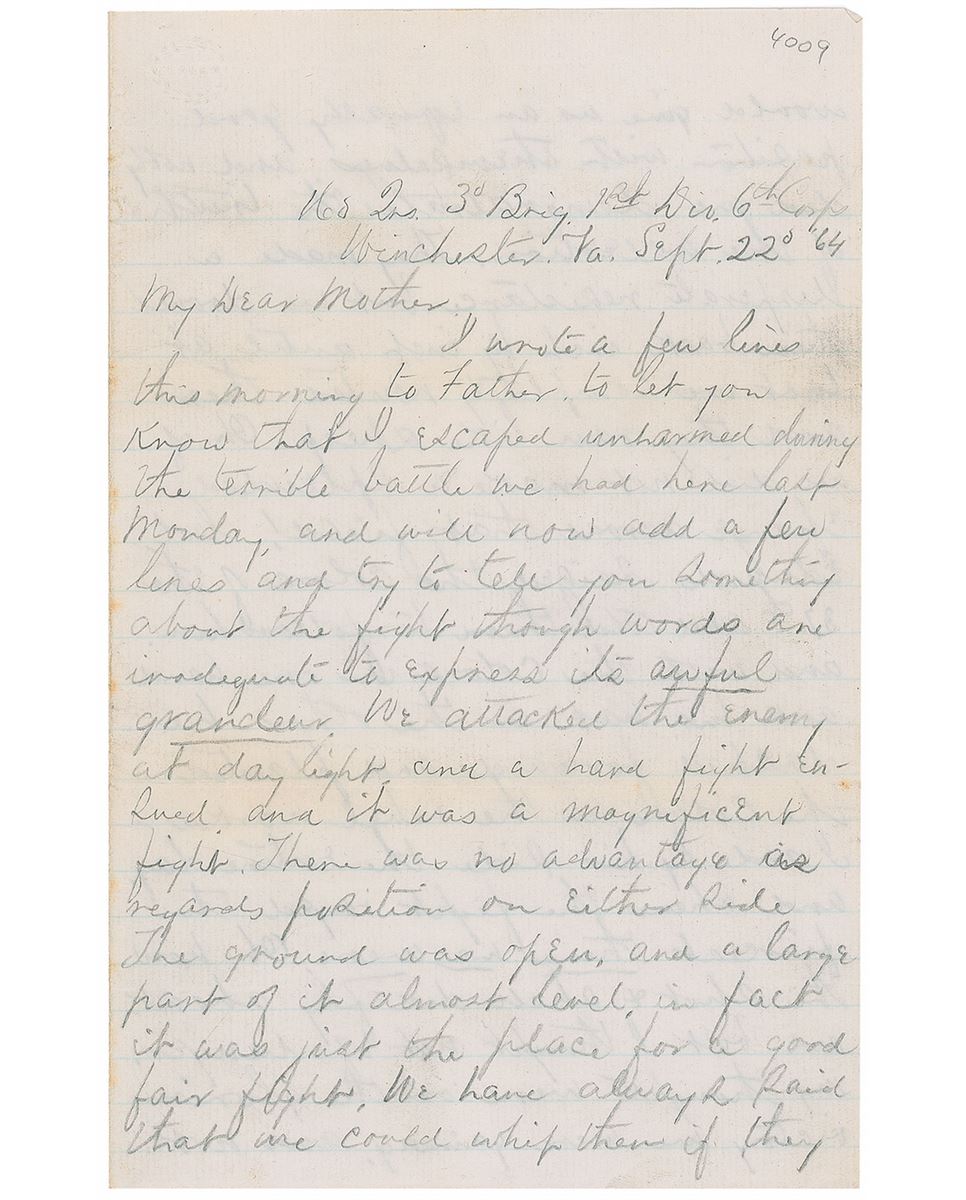 4009
Hd Qrs. 3d Brig. 1st Div. 6th Corps
Winchester. Va. Sept. 22d '64
My Dear Mother.
I wrote a few lines
this morning to Father. to let you
Know that I, escaped unharmed during
the terrible battle we had here last
Monday, and will now add a few
lines and try to tell you something
about the fight though words are
inadequate to express its awful
grandeur. We attacked the enemy
at day light, and a hard fight en-
sued. and it was a magnificent
fight. There was no advantage as
regards position on Either side
The ground was open, and a large
part of it almost level, in fact
it was just the place for a good
fair fight. We have always said
that we could whip them if they